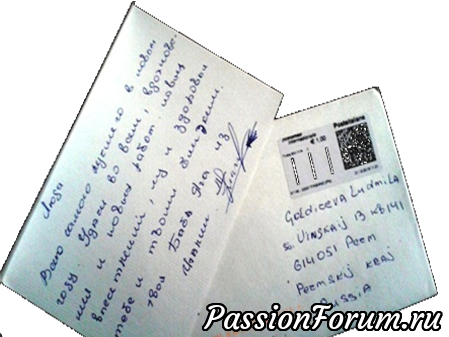 Люда
Всего самого лучшего в новом
году. Удачи во всём, вдохнове-
ния и новых работ, новых
впечатлений, ну и здоровья
тебе и твоим близким.
твоя Баба Яга из
Италии.
Posteitaliane
€ 1,00
GOLDICEVA LUDMILA
UINSKAIJ 13 KB 141
614051 PERM
PERMSKIJ KRAJ
RUSSIA
PassionForum.ru